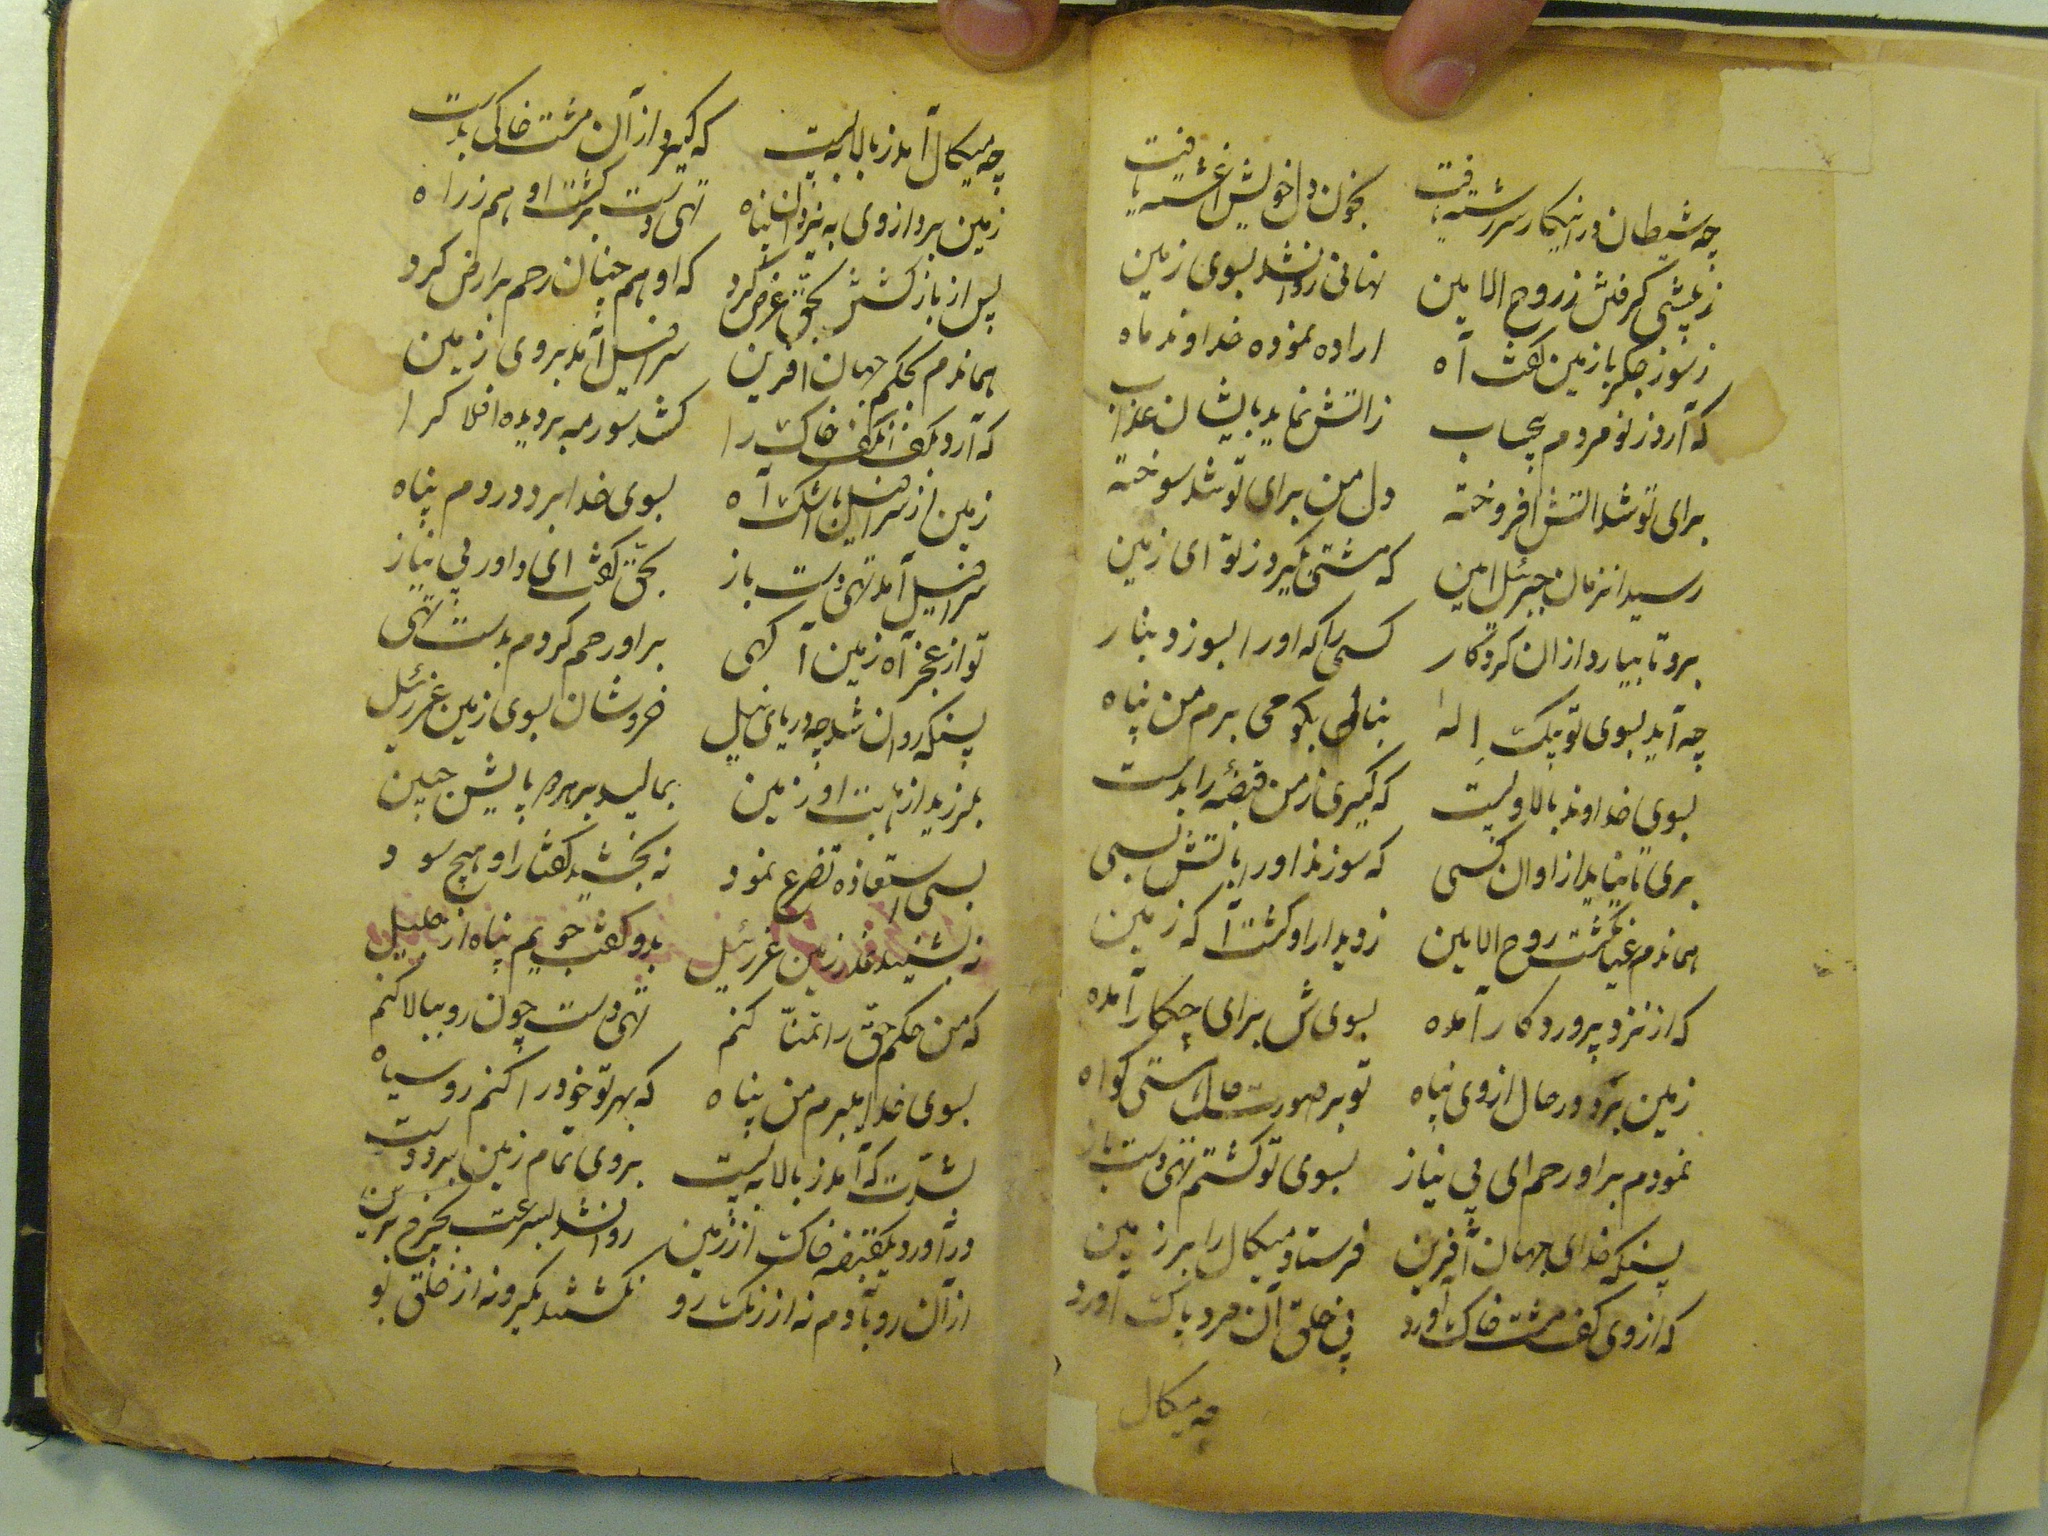 چه شیطان در اینکار سررشته یافت بخون دل خویش اغشته یافت
ز پیشی گرفتش ز روح الامین نهانی روانشد بسوی زمین
ز سوز جگر با زمین گفت آه اراده نموده خداوند ماه
که آرد ز تو مردم بیحساب ز اتش نماید بایشان عذاب
برای تو شد اتش افروخته دل من برای تو شد سوخته
رسید انزمان جبرئیل امین که مشتی بگیرد ز تو ای زمین
برو تا نیارد از ان کردکار کسی را که او را بسوزد بنار
چه آید بسوی تو پیک اله بنالی بگو می برم من پناه
بسوی خداوند بالا و پست که گیری ز من قبضهٔ را بدست
بری تا نیاید از او ان کسی که سوزند او را باتش بسی
همانده غیبگشت روح الامین ز دیدار او گشت آگه زمین
که از نزد پروردگار آمده بسوی‌ش برای چکار آمده
زمین برد در حال از وی پناه تو بر صورت حال هستی گواه
نمودم بر او رحم ای بی نیاز بسوی تو گشتم تهی دست باز
پسنگه خدای جهان آفرین فرستاد میکال را بر زمین
که از وی کف مشت خاک آورد پی خلق آن مرد پاک آورد
چه میکال
چه میکال آمد ز بالا به پست که گیرد از آن مشت خاکی بدست
زمین برد از وی به یزدان پناه تهی دست برگشت او هم ز راه
پس از بازگشتش بحق عرض کرد که او هم چنان رحم بر ارض کرد
هماندم بحکم جهان افرین سرافیل آمد بروی زمین
که آرد بکف انکف خاک را کشد سورمه بر دیده افلاک را
زمین از سرافیل با اشک آه بسوی خدا برد در دم پناه
سرافیل آمد تهی دست باز بحق گفت ای داور بی نیاز
تو از عجز آه زمین آگهی بر او رحم کردم بدست تهی
پسنگه روان شد چه دریای نیل خروشان بسوی زمین عزرئیل
بلرزید از هیبت او زمین بمالید بر هر پایش جبین
بسی استعاذه تضرع نمود نه بخشید گفتار او هیچ سود
نه بشنید عذر زمین عزرئیل بدو گفت جویم پناه از جلیل
که من حکم حق را تمنا کنم تهی دست چون رو ببالا کنم
بسوی خدا میبرم من پناه که بهر تو خود را کنم رو سیاه
بشدت که آمد ز بالا به پست بروی تمام زمین برد دست
در آورد یکقبضه خاک از زمین روانشد بسرعت بچرخ برین
از آن رو بآدم نه از رنگ رو نگشتند بگیرونه از خلق بو